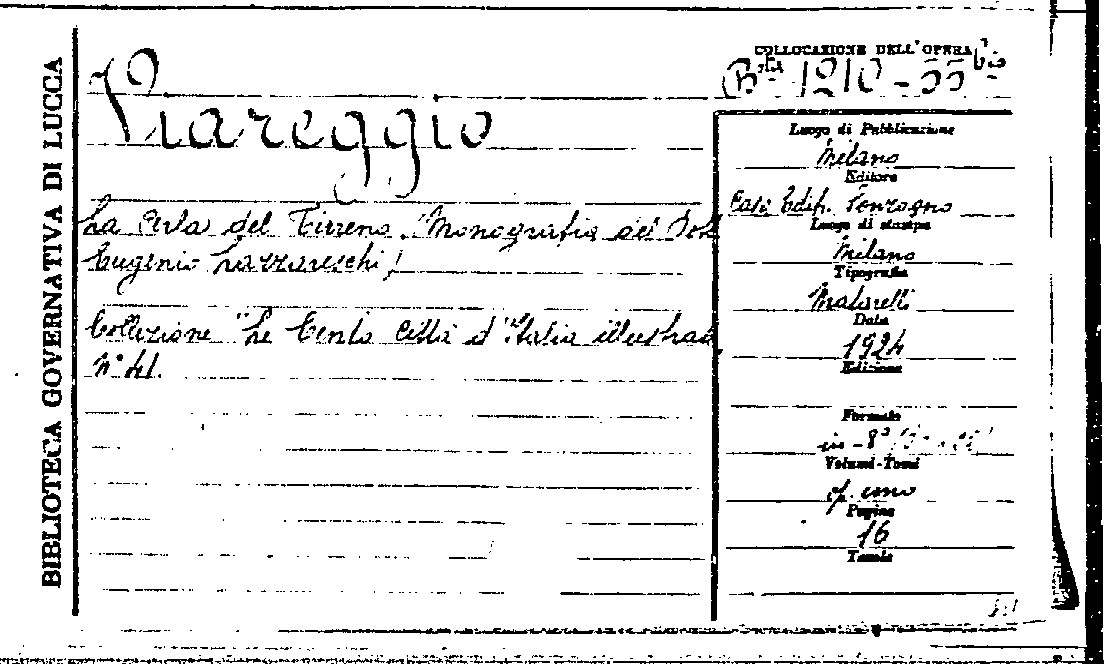 BIBLIOTECA GOVERNATIVA DI LUCCA
Viareggio
La Perla del Tirreno. (Monografia del Dott.
Eugenio Lazzareschi)
Collezione "Le Cento Città d'Italia illustrate
N° 41.
COLLOCAZIONE DELL'OPERA
Bta 1210-55 bis
Luogo di Pubblicazione
Milano
Editore
Casa Edit. Sonzogno
Luogo di stampa
Milano
Tipografia
Matarelli
Data
1924
Edizione
Formato
in-8°
Volumi-Tomi
uno
Pagine
16
Tavole